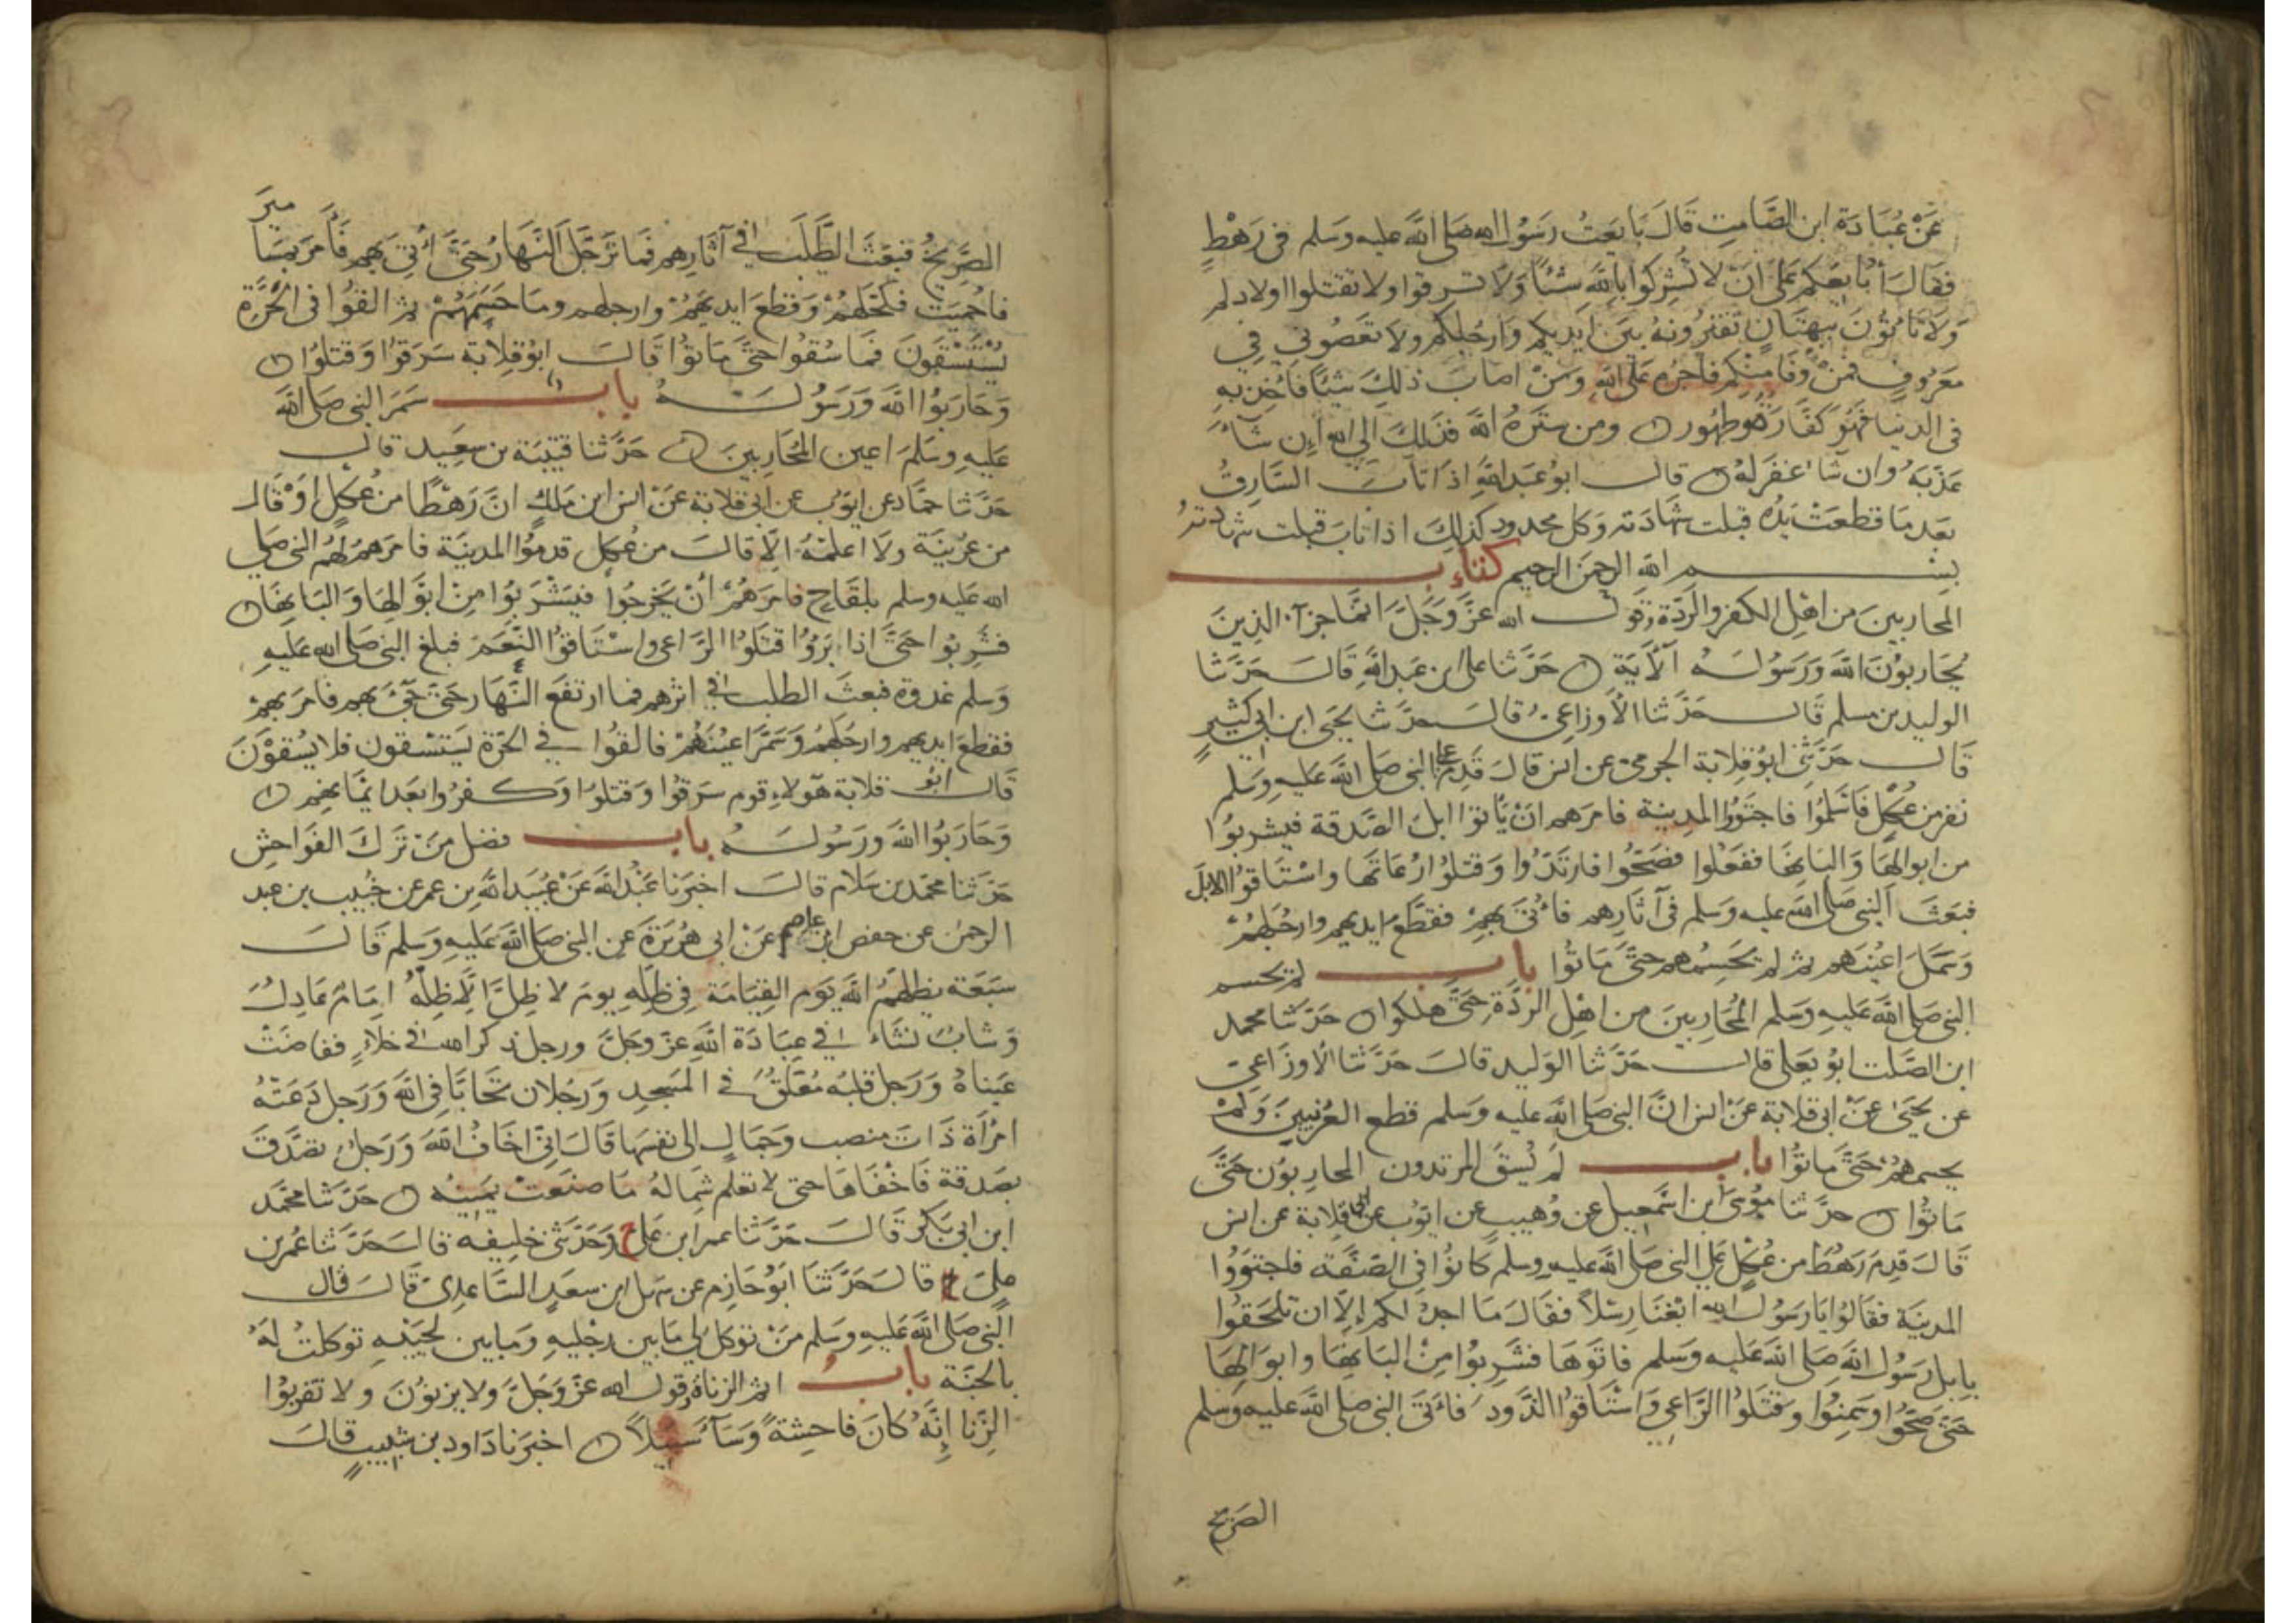 عَنْ عُبَادَة ابن الصَّامِتِ قَالَ بَايَعتُ رَسُول الله صَلى الله عليه وسَلم فى رَهْطٍ
فقَالَ أُبَايعَكم عَلَى انَ لا تُشركوا بِاللَّهِ شَيْئًا وَلَا تسرقوا ولا تقتلوا اولادكم
وَلَا تَاتُونَ ببهتَانٍ تَفْتَرُونهُ بين ايديكم وَارجُلِكم ولا تعصُونى فِي
معرُوفٍ فمنْ وَفَا مِنكم فأجرُه عَلَى اللهِ وَمَنْ اصابَ ذلِكَ شيْئًا فَأُخِذ بِهِ
فى الدنيا فهُوَ كفّارَةٌ وطهُور ومن سَتَرَهُ الله فذلِكَ الى الله إن شَاءَ
عَذّبَهُ وان شَا غفَرَ لَهُ قال ابو عَبد اللهِ اذا تابَ السَّارِقُ
بَعد مَا قطعَتْ يَدُه قبلت شَهادَته وَكل محدودٍ كذلِكَ اذا تابَ قبلت شهادته
بسم الله الرحمن الرحيم كتاب
المحاربينَ من اهْلِ الكفر والرّدّة وقول الله عزَّ وَجَلَّ انَّما جزآء الذينَ
يُحَاربُونَ الله وَرَسُولَهُ الآيَة حَدَّثنا على ابن عَبد اللهِ قَالَ حَدَّثنا
الوليد بن مسلم قَال حَدَّثنا الأوزاعِىُّ قال حدَّثنا يحيَى ابن ابى كثيرٍ
قَال حَدّثنى ابُو قِلابة الجرمىّ عن انس قالَ قَدِمَ على النبى صلى الله عَليهِ وسَلم
نفر من عُكْلٍ فَاسْلَمُوا فاجتَوَوا المدِينة فامرهم انْ يَأتوا ابلَ الصّدقة فيشربوُا
من ابوالِهَا وَالبَانِهَا ففعَلوا فصَحّوا فارتَدّوا وَقتلوُا رُعَاتَها واستَاقوُا الابلَ
فبَعَثَ النبى صَلى الله عليه وسَلم فى آثَارِهِم فأُتىَ بِهِم فقطَّع ايديهم وارجُلَهُمْ
وَسَمَلَ اعيُنهم ثم لم يَحسِمهم حتَّى مَاتُوا باب لم يحسم
النبى صلى الله عليه وَسَلم المُحَاربينَ من اهل الردّة حتَّى هلكوا حَدّثنا محمد
ابن الصَّلت ابوُ يَعلى قال حَدّثنا الوَليد قالَ حَدّثنا الأوزاعِى
عن يحيَى عنْ ابى قلابة عَنْ انس انَّ النبى صَلى الله عليه وسَلم قطع العُرنيينَ وَلَمْ
يحسمهُمْ حَتَّى ماتُوا باب لم يُسْقَ المرتدون المحاربوُن حَتَّى
مَاتُوا حدَّثنا مُوسَى ابن اسْمعِيل عن وُهيبٍ عن ايّوب عن ابى قِلابة عن انس
قَالَ قَدِمَ رَهْطٌ من عُكلٍ عَلى النبى صَلى الله عليه وسلم كانوُا فى الصّفّة فاجتوَوُا
المدينَة فقالُوا يا رَسُول الله ابْغنا رِسْلاً فقالَ مَا اجدُ لكم إلّا ان تلحَقوُا
بِابل رَسُول الله صَلى الله عَليه وَسَلم فاتَوهَا فشَرِبوُا مِنْ البَانِهَا وابوَالِهَا
حَتّى صَحّوُا وسَمِنُوا وقتَلوُا الرَّاعِى وَاسْتَاقوُا الذّود فأتَى النبى صلى الله عليه وسلم
الصريخ
الصَّرِيخُ فبَعَثَ الطَّلَبَ فى آثارِهِم فما تَرَجّلَ النّهَارُ حَتَّى أُتِىَ بِهم فَأَمرَ بمسَامير
فاحميَت فكحَلهُمْ وَقطعَ ايديَهُمْ وارجلهم ومَا حَسَمَهُمْ ثم القوُا فى الحَرَّةِ
يَسْتَسْقوُنَ فمَا سُقوُا حتّى مَاتوُا قالَ ابُو قِلابَة سَرَقوُا وَقتلوُا
وَحَارَبوُا الله وَرَسُولَهُ باب سَمَر النبى صَلى الله
عَليهِ وسَلمَ اعين المُحَاربينَ حَدَّثنا قتيبَة بن سعِيد قال
حَدّثنا حمّاد عن ايّوب عن ابى قِلابة عَنْ انس ابن مَلكٍ انّ رَهْطًا من عُكلٍ اوْ قال
من عُرَيْنَة ولا اعلمَهُ الّا قالَ من عُكلٍ قدموُا المدينَة فامَرَ لهمُ النبى صلى
الله عَليه وسلم بلقَاحٍ فامَرَهُمْ أنْ يَخرجوُا فيَشْرَبوُا مِنْ ابوَالِهَا وَالبَانِهَا
فشَرِبوا حَتَّى اذا بَرَوُا قتَلوُا الرَّاعى واسْتاقوُا النَّعَمَ فبلغ النبى صَلى الله عَليهِ
وَسَلم غدوة فبعثَ الطلب فى اثرهم فما ارتفعَ النَّهَار حتى جِىءَ بهم فامرَ بهمْ
فقطعَ ايديهم وارجُلهُمْ وسَمَّرَ اعيُنَهُمْ فالقُوا فى الحَرّة يَستَسْقونَ فلا يُسْقوْنَ
قَال ابو قلابة هَؤلاءِ قوم سَرَقوُا وَقتلوُا وَكفروُا بَعدَ ايمَانِهِم
وَحَارَبوُا الله ورَسُولَهُ باب فضل مَنْ تَرَكَ الفوَاحِش
حَدّثنا محمّد بن سَلام قالَ اخبَرنا عَبْد الله عَنْ عُبَيد اللهِ بن عمر عن خُبَيب بن عبد
الرحمن عن حفص ابن عاصم عَنْ ابى هُرَيرَةَ عن النبى صَلى الله عَليهِ وَسَلم قالَ
سَبْعَة يظلهمُ الله يَوم القِيَامَة فِي ظِلّهِ يومَ لا ظِلَّ الّا ظِلّهُ امَامٌ عَادِلٌ
وَشابٌ نشأ فى عِبَادَة اللهِ عَزّ وَجَلّ ورجل ذكر الله فى خلاءٍ ففاضَتْ
عَيناهُ وَرَجل قلبُه مُعَلّقٌ فى المَسْجِدِ وَرَجُلان تحَابَّا فى الله وَرَجل دَعَتْهُ
امْرَأة ذَاتَ منصب وجَمَالٍ الى نفسِها قَالَ انّى اخَافُ اللهَ وَرَجلٌ تصَدَّقَ
بصَدقة فَاخْفاهَا حتى لا تعْلم شِمالهُ مَا صنَعَتْ يَمينُه حَدّثنا محمّد
ابن ابى بَكر قَالَ حَدّثنا عمر ابن عَلى ح وَحَدّثنى خليفه قال حَدّثنا عُمر بن
على ح قالَ حَدَّثنَا ابوُ حَازِم عن سَهل ابن سعَدٍ السَّاعِدِى قالَ قال
النبى صَلى الله عَليهِ وسلم مَنْ توَكل لِي مَا بين رجْليهِ وَمَا بين لحيَيْهِ توكلتُ لَهُ
بالجَنّة باب اثم الزناة وقول الله عَزّ وَجَلّ ولا يزنوُنَ ولا تقربوُا
الزّنا إنّهُ كانَ فاحِشةً وَسَآءَ سَبِيلاً اخبَرنا دَاود بن شبِيبٍ قالَ